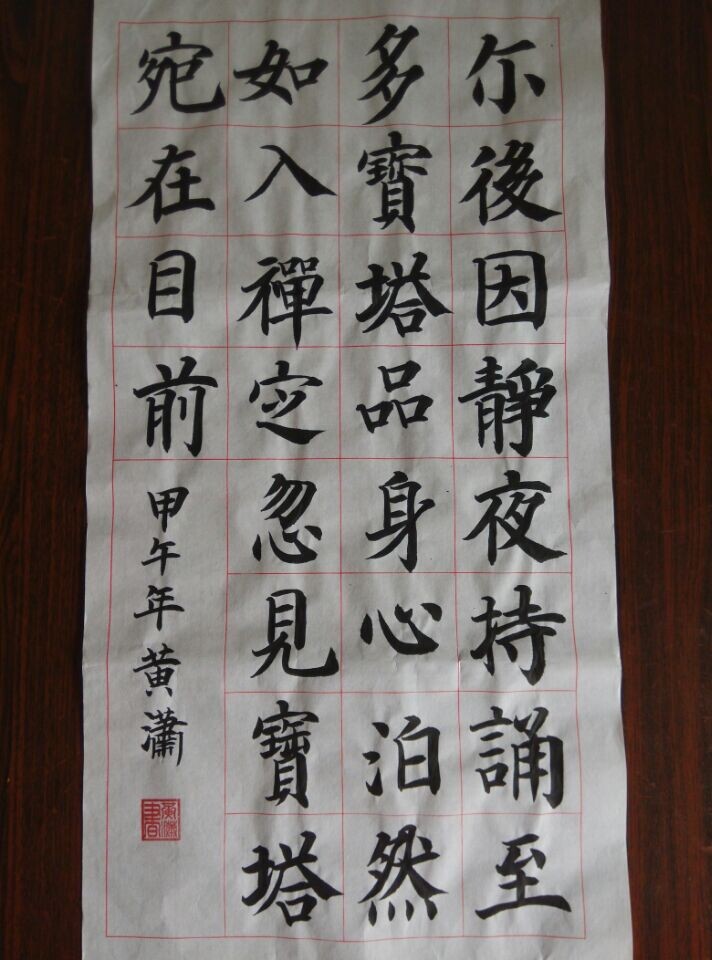 尒後因靜夜持誦至
多寶塔品身心泊然
如入禪定忽見寶塔
宛在目前
甲午年黄瀟